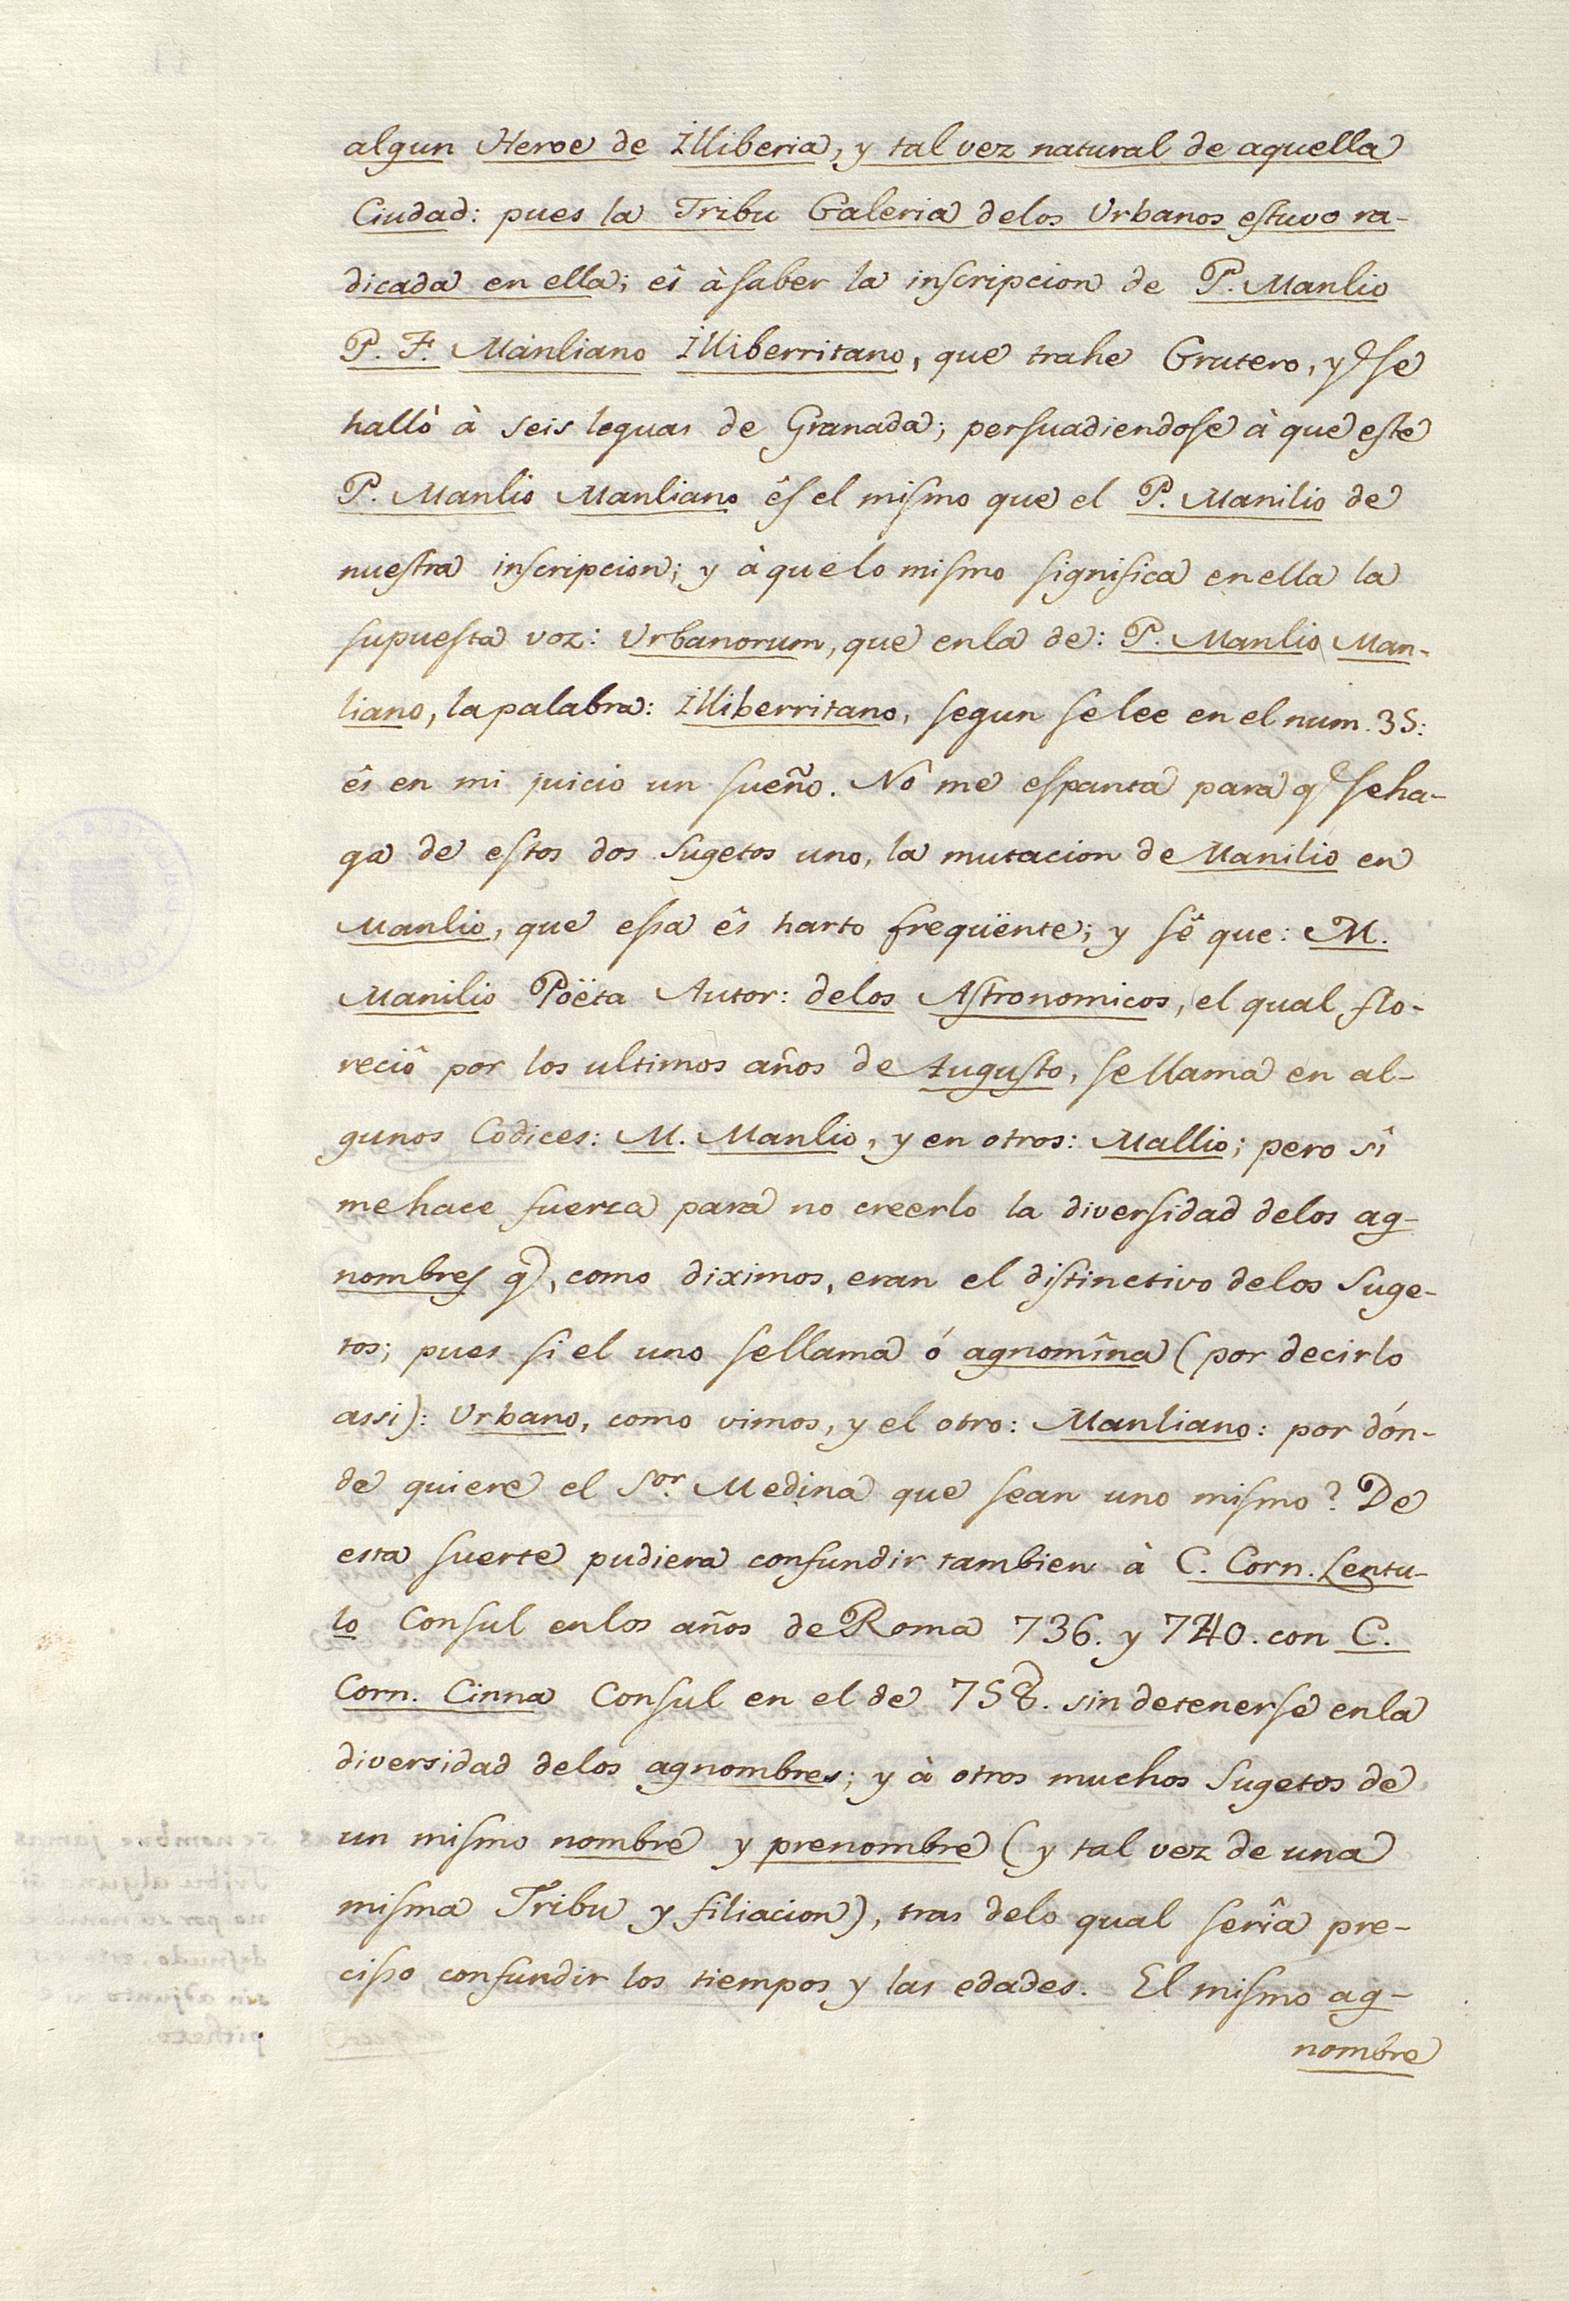 algun Heroe de Illiberia, y tal vez natural de aquella
Ciudad: pues la Tribu Galeria delos Urbanos estuvo ra-
dicada en ella; ês à saber la inscripcion de P. Manlio
P. F. Manliano Illiberritano, que trahe Grutero, y se
hallò à seis leguas de Granada; persuadiendose à que este
P. Manlio Manliano ês el mismo que el P. Manilio de
nuestra inscripcion; y à que lo mismo significa en ella la
supuesta voz: Urbanorum, que en la de: P. Manlio Man-
liano, la palabra: Illiberritano, segun se lee en el num. 35:
ês en mi juicio un sueño. Nô me espanta para q se ha-
ga de estos dos Sugetos uno, la mutacion de Manilio en
Manlio, que essa ês harto freqüente; y sê que: M.
Manilio Poëta Autor: delos Astronomicos, el qual flo-
reciô por los ultimos años de Augusto, se llama en al-
gunos Codices: M. Manlio, y en otros: Mallio; pero sî
me hace fuerza para no creerlo la diversidad delos ag-
nombres q, como diximos, eran el distinctivo delos Suge-
tos; pues si el uno se llama ó agnomîna (por decirlo
assi): Urbano, como vimos, y el otro: Manliano: por dón-
de quiere el Sor. Medina que sean uno mismo? De
esta suerte pudiera confundir tambien à C. Corn. Lentu-
lo Consul en los años de Roma 736. y 740. con C.
Corn. Cinna Consul en el de 758. sin detenerse en la
diversidad delos agnombres; y à otros muchos Sugetos de
un mismo nombre y prenombre (y tal vez de una
misma Tribu y filiacion), tras delo qual serîa pre-
cisso confundir los tiempos y las edades. El mismo ag-
nombre